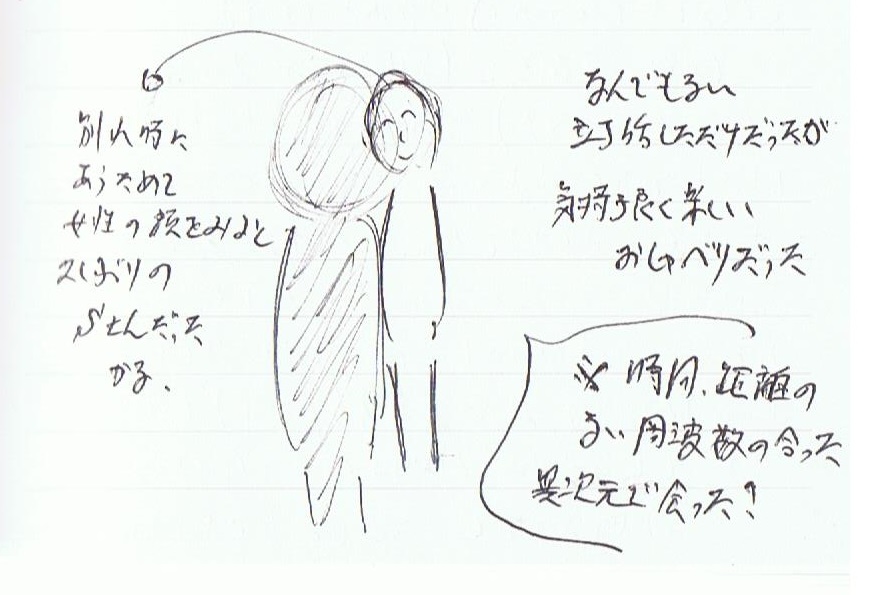 別れ時に
あらためて
女性の顔をみると
久しぶりの
Sさんだった
なんでもない
立ち話しただけだったが
気持ち良く楽しい
おしゃべりだった
※ 時間、距離の
ない周波数の合った
異次元で会った!